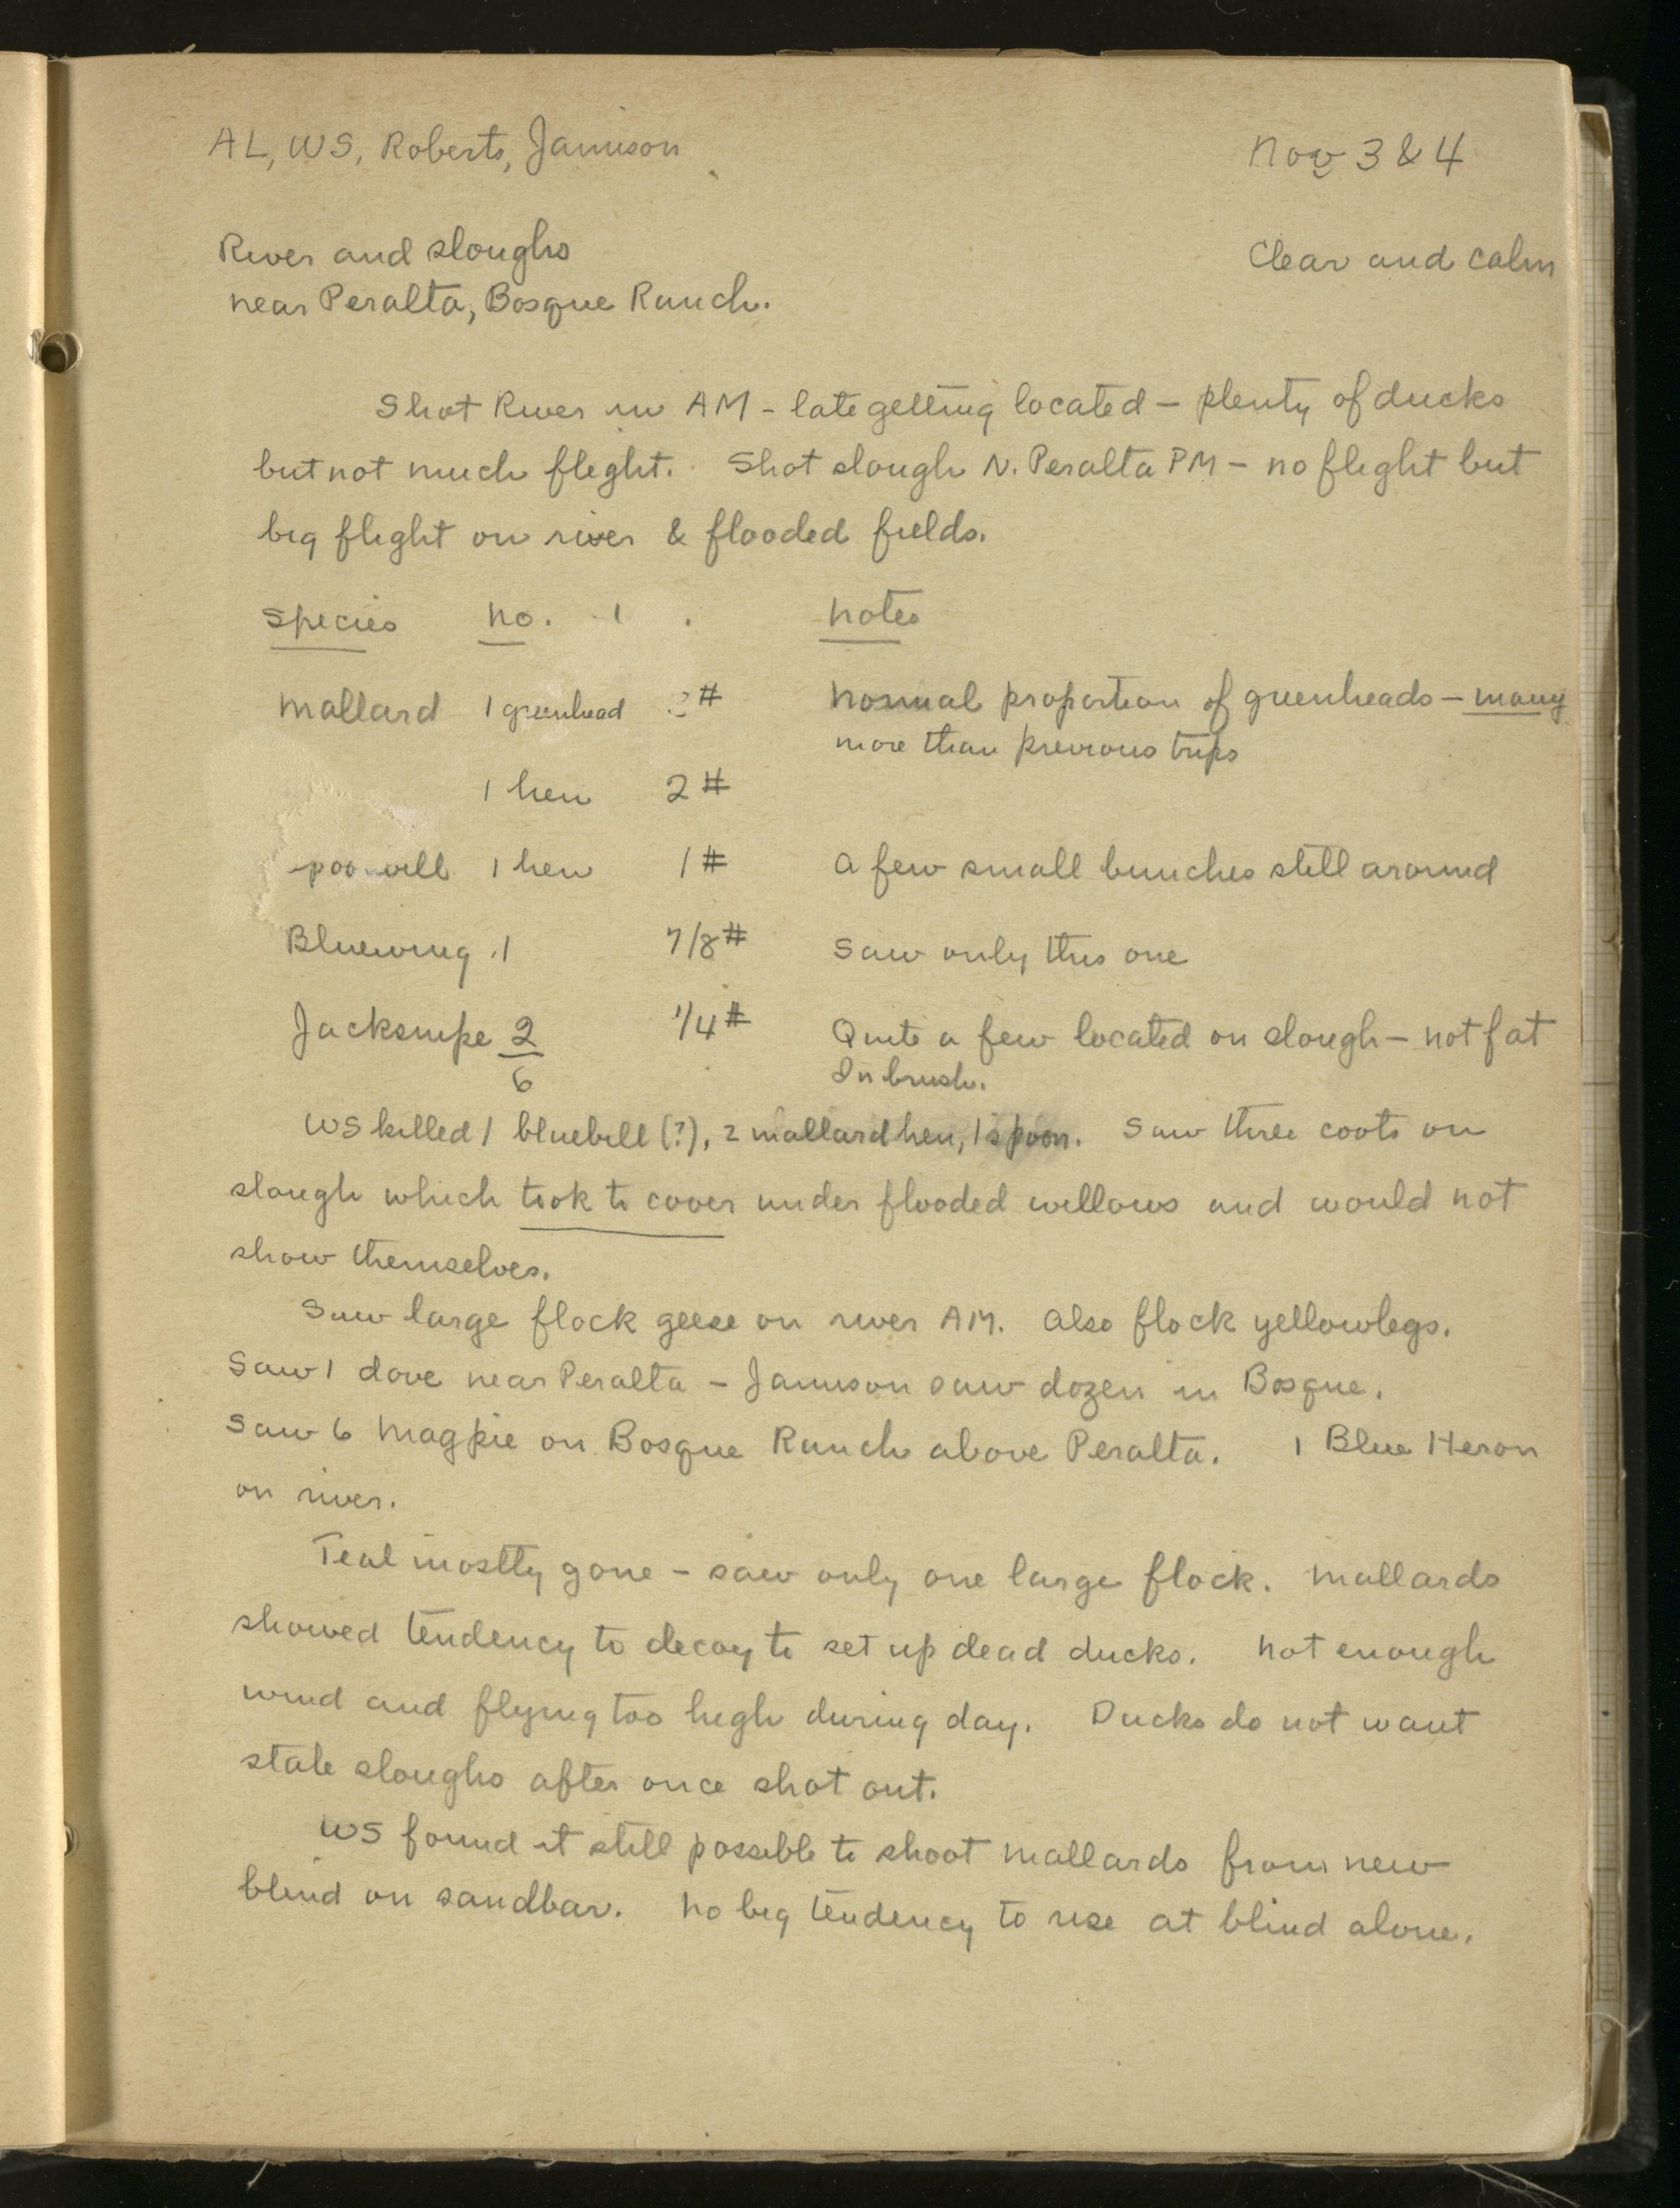 AL, WS, Roberts, Jamison Nov 3 & 4
River and sloughs Clear and calm
near Peralta, Bosque Ranch.
Shot River in AM - late getting located - plenty of ducks
but not much flight. Shot slough N. Peralta PM - no flight but
big flight on river & flooded fields.
Species No. notes
Mallard 1 greenhead # Normal proportion of greenheads - many
more than previous trips
1 hen 2#
1 hen 1# A few small bunches still around
Bluewing 1 7/8# Saw only this one
Jacksnipe 2 1/4# Quite a few located on slough - not fat
6 In brush.
WS killed 1 bluebill (?), 2 mallard hen, 1 spoon. Saw three coots on
slough which took to cover under flooded willows and would not
show themselves.
Saw large flock geese on river AM. Also flock yellowlegs.
Saw 1 dove near Peralta - Jamison saw dozen in Bosque.
Saw 6 Magpie on Bosque Ranch above Peralta. 1 Blue Heron
on river.
Teal mostly gone - saw only one large flock. Mallards
showed tendency to decoy to set up dead ducks. Not enough
wind and flying too high during day. Ducks do not want
stale sloughs after once shot out.
WS found it still possible to shoot mallards from new
blind on sandbar. No big tendency to rise at blind alone.